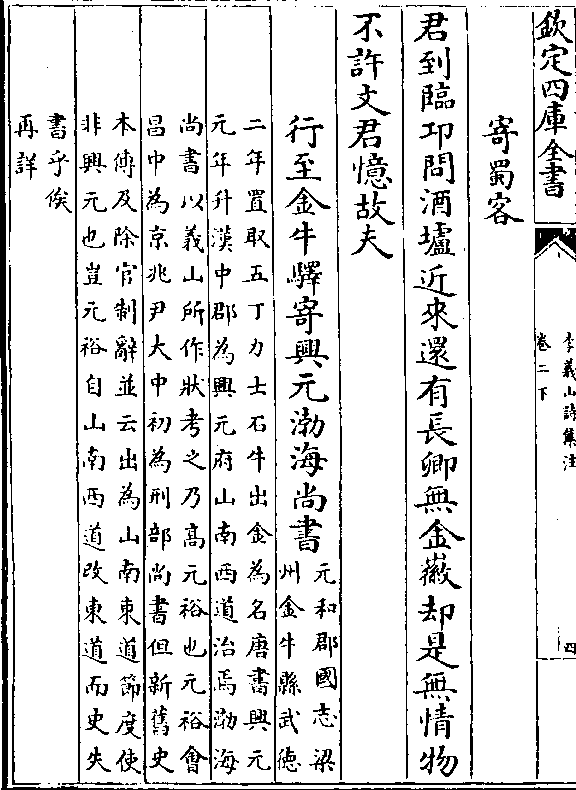 欽定四庫全書
李義山詩集注
卷二下
四
寄蜀客
君到臨卭問酒壚近來還有長卿無金徽却是無情物
不許文君憶故夫
行至金牛驛寄興元渤海尚書
元和郡國志梁
州金牛縣武德
二年置取五丁力士石牛出金為名唐書興元
元年升漢中郡為興元府山南西道治焉渤海
尚書以義山所作狀考之乃髙元裕也元裕會
昌中為京兆尹大中初為刑部尚書但新舊史
本傳及除官制辭並云出為山南東道節度使
非興元也豈元裕自山南西道改東道而史失
書乎俟
再詳